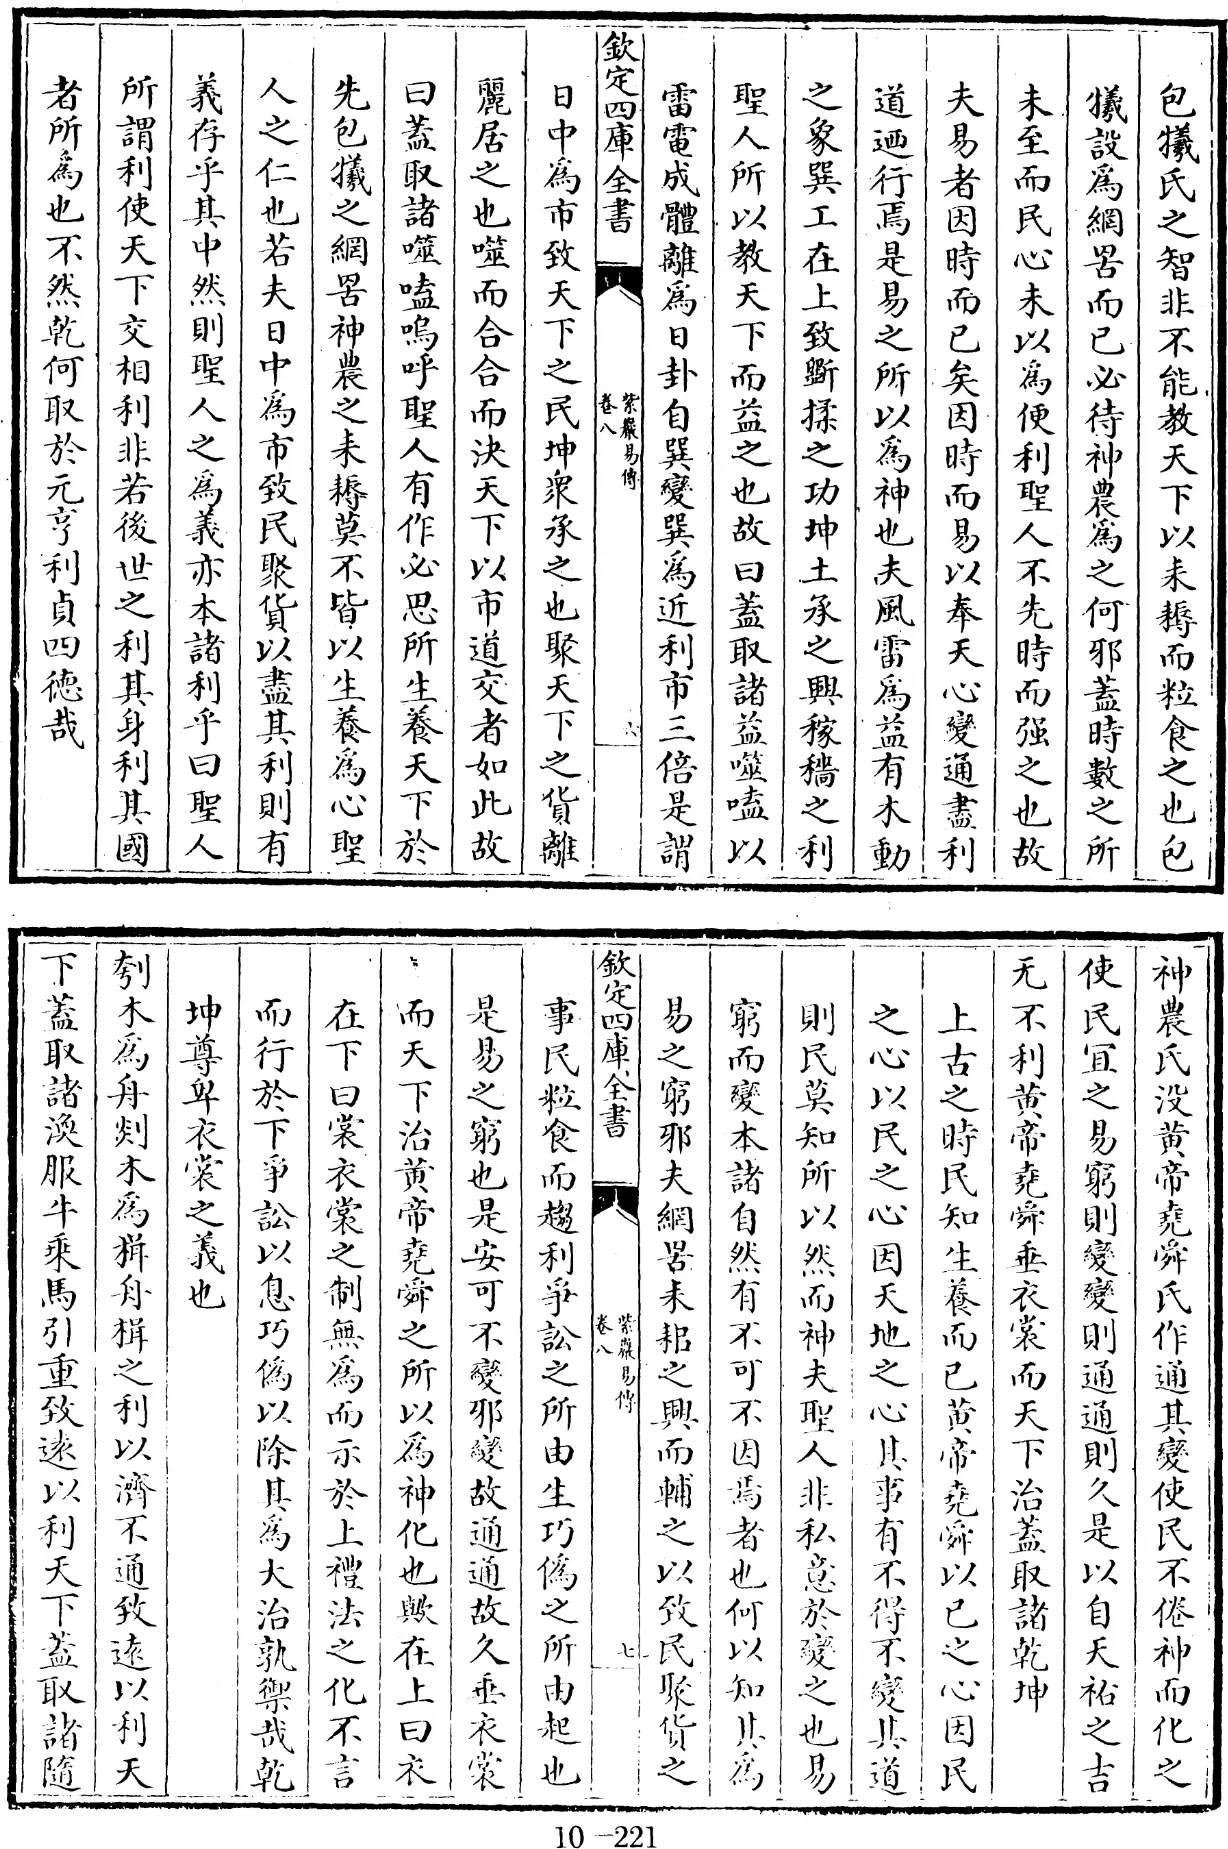 包犧氏之智非不能教天下以耒耨而粒食之也包
犧設為網罟而已必待神農為之何邪蓋時數之所
未至而民心未以為便利聖人不先時而强之也故
夫易者因時而已矣因時而易以奉天心變通盡利
道迺行焉是易之所以為神也夫風雷為益有木動
之象巽工在上致斵揉之功坤土承之興稼穡之利
聖人所以教天下而益之也故曰蓋取諸益噬嗑以
雷電成體離為日卦自巽變巽為近利市三倍是謂
欽定四庫全書
紫巖易傳
卷八
六
日中為市致天下之民坤衆承之也聚天下之貨離
麗居之也噬而合合而決天下以市道交者如此故
曰蓋取諸噬嗑嗚呼聖人有作必思所生養天下於
先包犧之網罟神農之耒耨莫不皆以生養為心聖
人之仁也若夫日中為市致民聚貨以盡其利則有
義存乎其中然則聖人之為義亦本諸利乎曰聖人
所謂利使天下交相利非若後世之利其身利其國
者所為也不然乾何取於元亨利貞四德哉
神農氏没黄帝堯舜氏作通其變使民不倦神而化之
使民宜之易窮則變變則通通則久是以自天祐之吉
无不利黄帝堯舜垂衣裳而天下治蓋取諸乾坤
上古之時民知生養而已黄帝堯舜以已之心因民
之心以民之心因天地之心其事有不得不變其道
則民莫知所以然而神夫聖人非私意於變之也易
窮而變本諸自然有不可不因焉者也何以知其為
易之窮邪夫網罟耒耜之興而輔之以致民聚貨之
欽定四庫全書
紫巖易傳
卷八
七
事民粒食而趨利爭訟之所由生巧偽之所由起也
是易之窮也是安可不變邪變故通通故久垂衣裳
而天下治黄帝堯舜之所以為神化也歟在上曰衣
在下曰裳衣裳之制無為而示於上禮法之化不言
而行於下爭訟以息巧偽以除其為大治孰禦哉乾
坤尊卑衣裳之義也
刳木為舟剡木為楫舟楫之利以濟不通致遠以利天
下蓋取諸渙服牛乘馬引重致遠以利天下蓋取諸隨
10-221